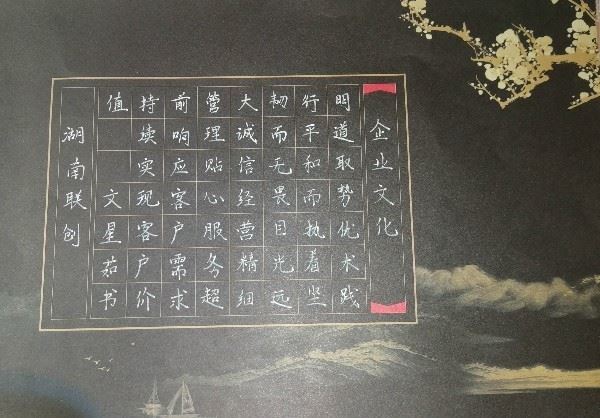 企业文化
明道取势优术践
行平和而执着坚
韧而无畏目光远
大诚信经营精细
管理贴心服务超
前响应客户需求
持续实现客户价
值 文星茹书
湖南联创